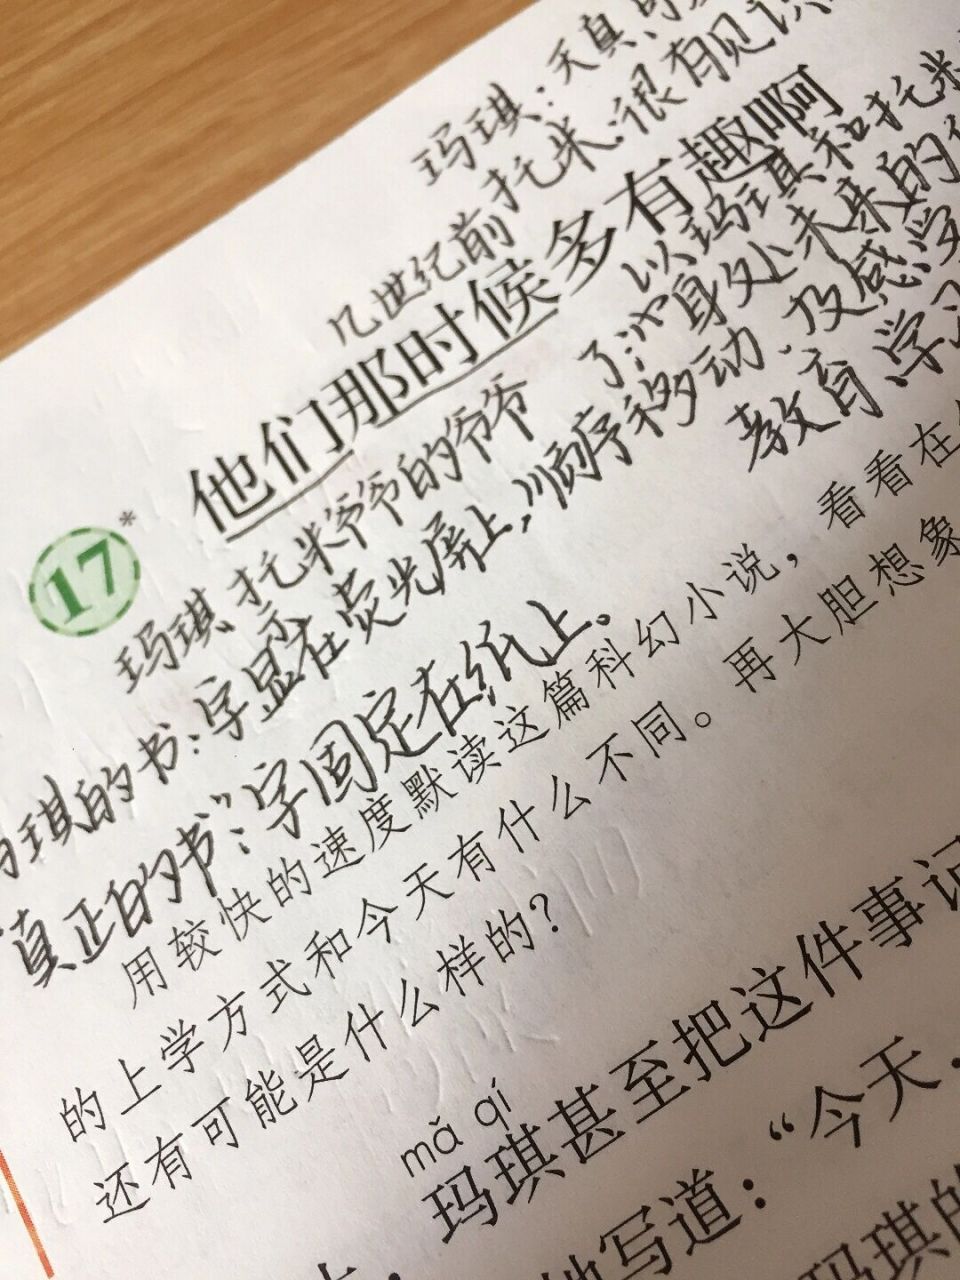 玛琪：天真、
托米：很有见识
几世纪前
17*
他们那时候多有趣啊
以玛琪和托米
身处未来的
玛琪、托米爷爷的爷爷
玛琪的书：字显示在荧光屏上，顺序移动．及感受
教育、学习
“真正的书”：字固定在纸上。
用较快的速度默读这篇科幻小说，看看在
的上学方式和今天有什么不同。再大胆想象
还有可能是什么样的？
mǎ qí
玛琪甚至把这件事记
写道：“今天，
玛琪的